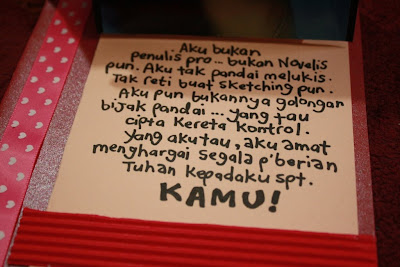 Aku bukan
penulis pro... bukan Novelis
pun. Aku tak pandai melukis.
Tak reti buat sketching pun.
Aku pun bukannya golongan
bijak pandai ... yang tau
cipta Kereta Kontrol.
Yang akutau, aku amat
menghargai segala p'berian
Tuhan kepadaku spt.
KAMU!